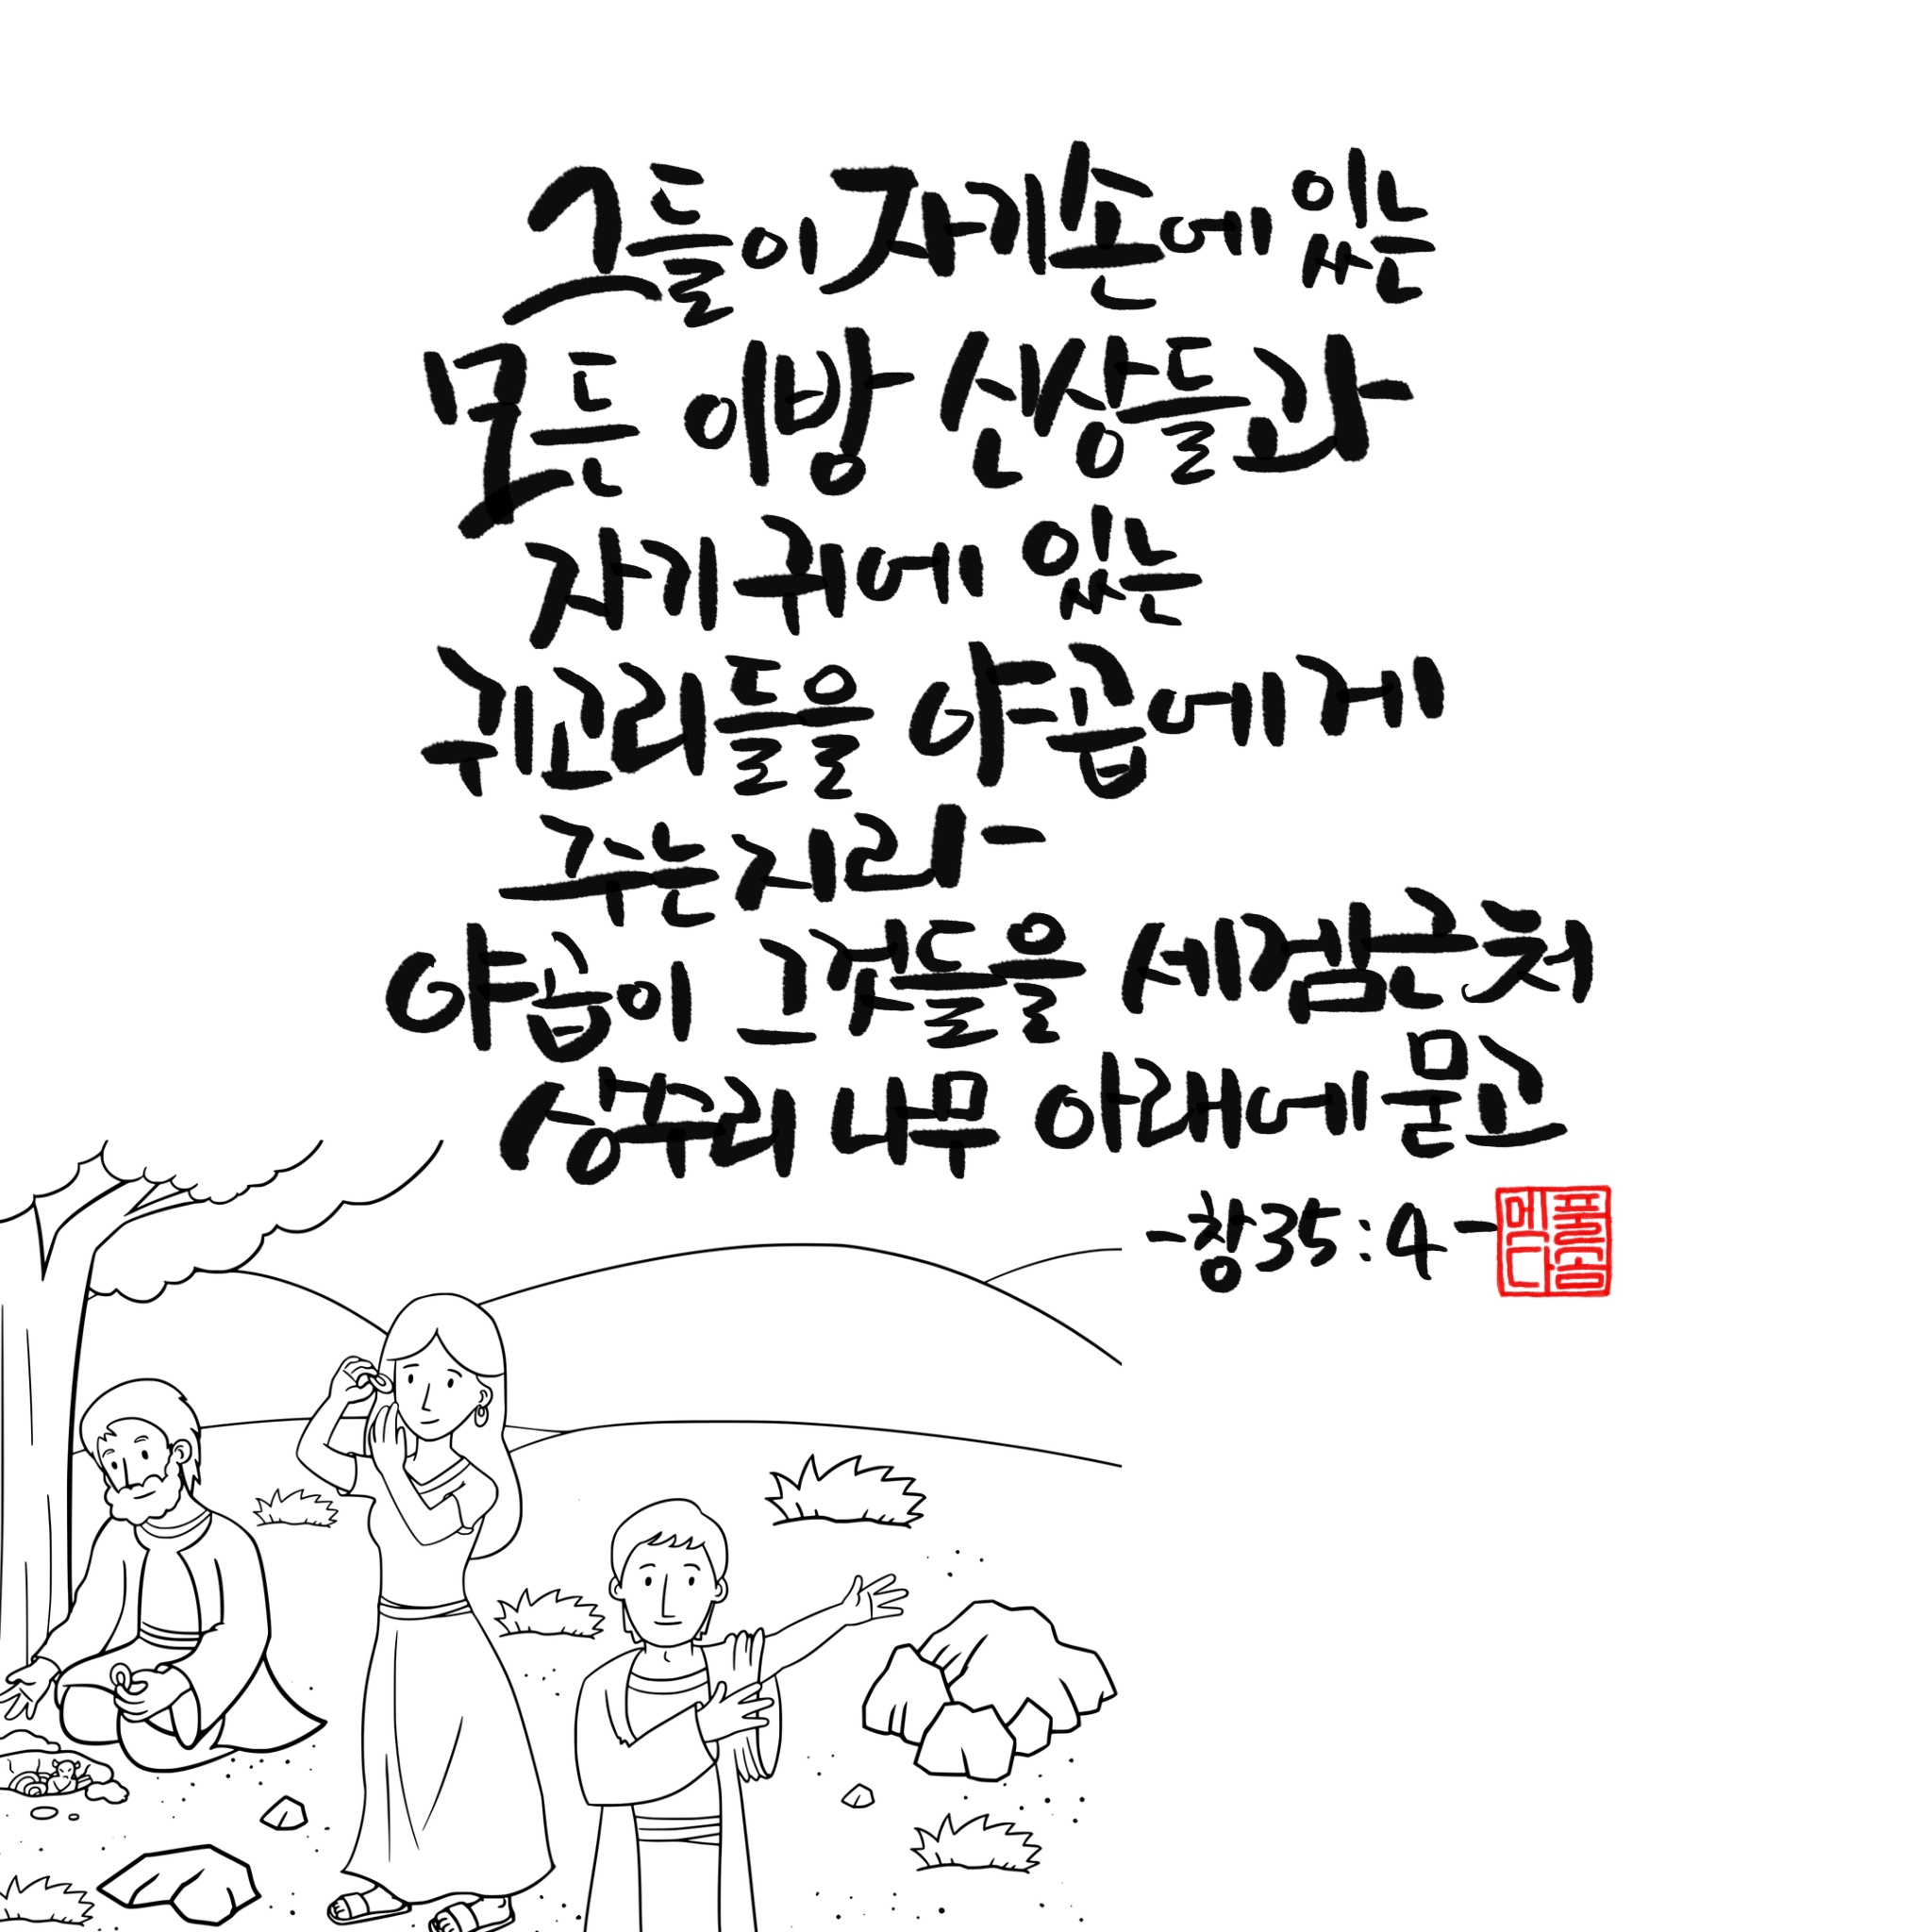 그들이 자기 손에 있는
모든 이방 신상들과
자기 귀에 있는
귀고리들을 야곱에게
주는지라-
야곱이 그것들을 세겜 근처
상수리 나무 아래에 묻고
-창 35:4-